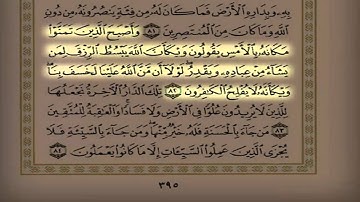 بِهِۦ وَبِدَارِهِ ٱلْأَرْضَ فَمَا كَانَ لَهُۥ مِن فِئَةٍ يَنصُرُونَهُۥ مِن دُونِ
ٱللَّهِ وَمَا كَانَ مِنَ ٱلْمُنتَصِرِينَ ٨١ وَأَصْبَحَ ٱلَّذِينَ تَمَنَّوْا۟
مَكَانَهُۥ بِٱلْأَمْسِ يَقُولُونَ وَيْكَأَنَّ ٱللَّهَ يَبْسُطُ ٱلرِّزْقَ لِمَن
يَشَآءُ مِنْ عِبَادِهِۦ وَيَقْدِرُ ۖ لَوْلَآ أَن مَّنَّ ٱللَّهُ عَلَيْنَا لَخَسَفَ بِنَا ۖ
وَيْكَأَنَّهُۥ لَا يُفْلِحُ ٱلْكَٰفِرُونَ ٨٢ تِلْكَ ٱلدَّارُ ٱلْءَاخِرَةُ نَجْعَلُهَا
لِلَّذِينَ لَا يُرِيدُونَ عُلُوًّا فِى ٱلْأَرْضِ وَلَا فَسَادًا ۚ وَٱلْعَٰقِبَةُ لِلْمُتَّقِينَ
٨٣ مَن جَآءَ بِٱلْحَسَنَةِ فَلَهُۥ خَيْرٌ مِّنْهَا ۖ وَمَن جَآءَ بِٱلسَّيِّئَةِ فَلَا
يُجْزَى ٱلَّذِينَ عَمِلُوا۟ ٱلسَّيِّـَٔاتِ إِلَّا مَا كَانُوا۟ يَعْمَلُونَ ٨٤
٣٩٥